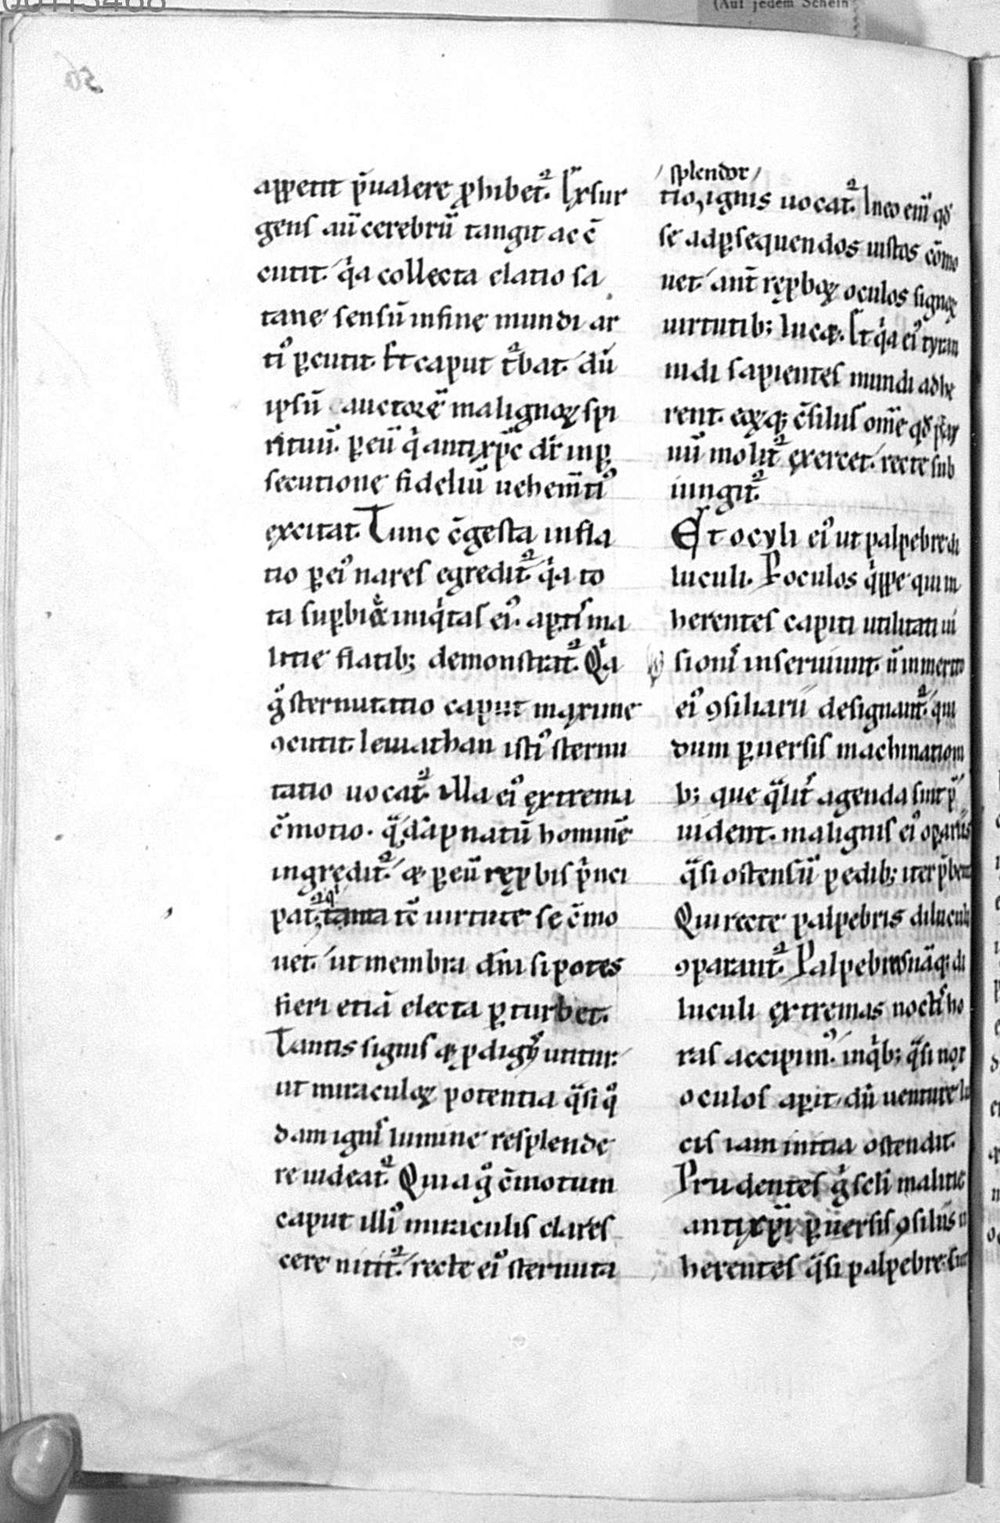 00113468
(Auf jedem Schein
56
appetit p̄ualere ꝓhibet᷑. Exsur
gens aū cerebrū tangit ac c̄
cutit. q̇a collecta elatio sa
tane sensū in fine mundi ar
tiꝰ ꝑcutit. Et caput t̉bat. dū
ipsū auctorē malignoꝝ spi
rituū. ꝑ eū q̇ antixp̄c dr̄ in ꝑ
secutione fideliū uehem̄tiꝰ
excitat. Tunc c̄gesta infla
tio ꝑ eiꝰ nares egredit᷑. q̇a to
ta suꝑbię iniq̇tas eiꝰ. aꝑtis ma
litie flatibꝫ demonstrat᷑. Q̇a
g̊ sternutatio caput maxime
ꝯcutit leuiathan istiꝰ sternu
tatio uocat᷑ illa eiꝰ extrema
c̄motio. q̄ dāpnatū hominē
ingredit᷑. & ꝑ eū rep̱bis ṗnci
pat᷑. tē uirtute se c̄mo
uet. ut membra dn̄i si potes
fieri etiā electa ꝑturbet.
Tantis signis & ꝓdigiis utitur:
ut miraculoꝝ potentia q̄si q̊
dam ignis lumine resplende
re uideat᷑. Quia g̊ c̄motum
caput illiꝰ miraculis clares
cere nitit᷑. recte eiꝰ sternuta
splendor
tio, ignis uocat᷑. In eo eni qd̄
se ad ꝑsequendos iustos c̄mo
uet. ant̄ rep̱boꝝ oculos signoꝝ
uirtutibꝫ lucet. Et q̇a eiꝰ tyran
nidi sapientes mundi adhe
rent. eoꝝqꝫ c̄siliis om̄e qd̄
uū molit᷑ exercet. recte sub
iungit᷑.
Et oculi eiꝰ ut palpebre di
luculi. P oculos q̇ppe qui in
herentes capiti utilitati ui
sionis inseruiunt. n̄ inmerito
eiꝰ ꝯsiliarii designant᷑. qui
dum ꝑuersis machination
bꝫ que q̄lit̄ agenda sint p̄
uident. malignis eiꝰ oꝑariis
q̄si ostensū pedibꝫ iter p̄bent
Qui recte palpebris diluculi
ꝯparant᷑. Palpebras nāqꝫ di
luculi extremas noctis ho
ras accipimꝰ. in q̇bꝫ q̄si nox
oculos aꝑit. dū uenture lu
cis iam initia ostendit.
Prudentes g̊ scli malitie
antixp̄i ꝑuersis ꝯsiliis in
herentes q̄si palpebre sunt